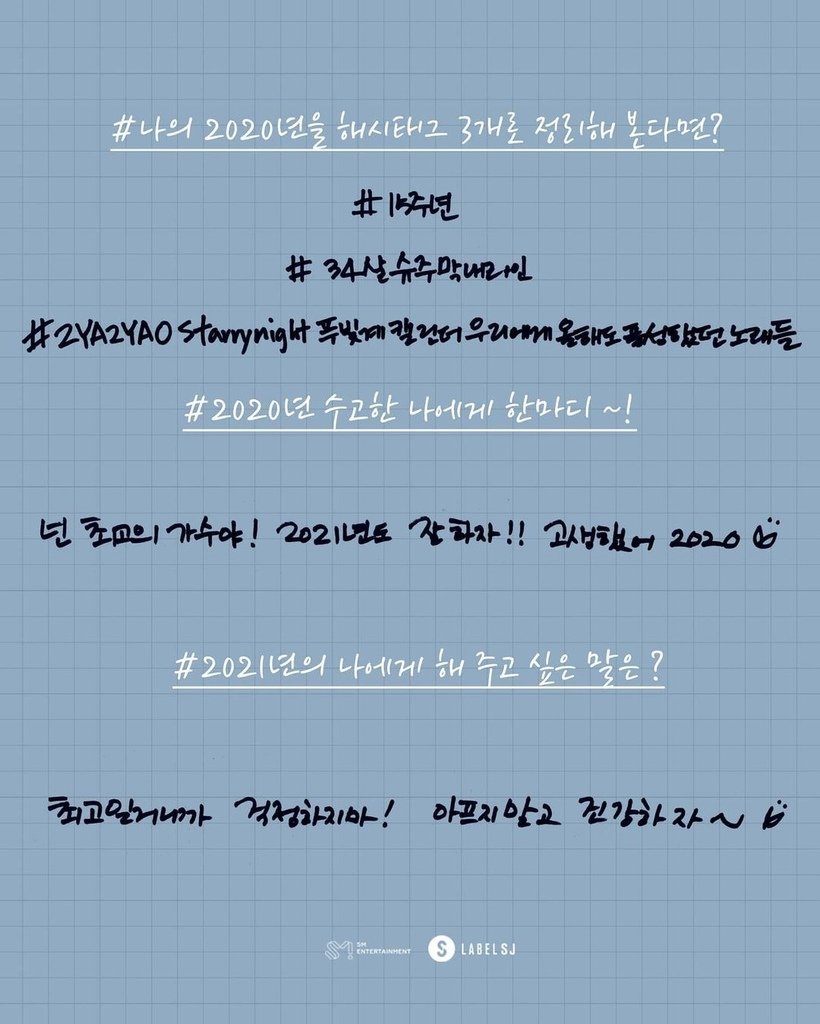 #나의 2020년을 해시태그 3개로 정리해 본다면?
# 15주년
# 34살슈주막내라인
#2YA2YAO Starrynight 푸빛계 캘린더 우리에게 올해도 풍성했던 노래들
#2020년 수고한 나에게 한마디 ~!
넌 최고의 가수야! 2021년도 잘하자!! 고생했어 2020
#2021년의 나에게 해 주고 싶은 말은?
최고일거니까 걱정하지마! 아프지말고 건강하자~
SM ENTERTAINMENT
S LABELSJ